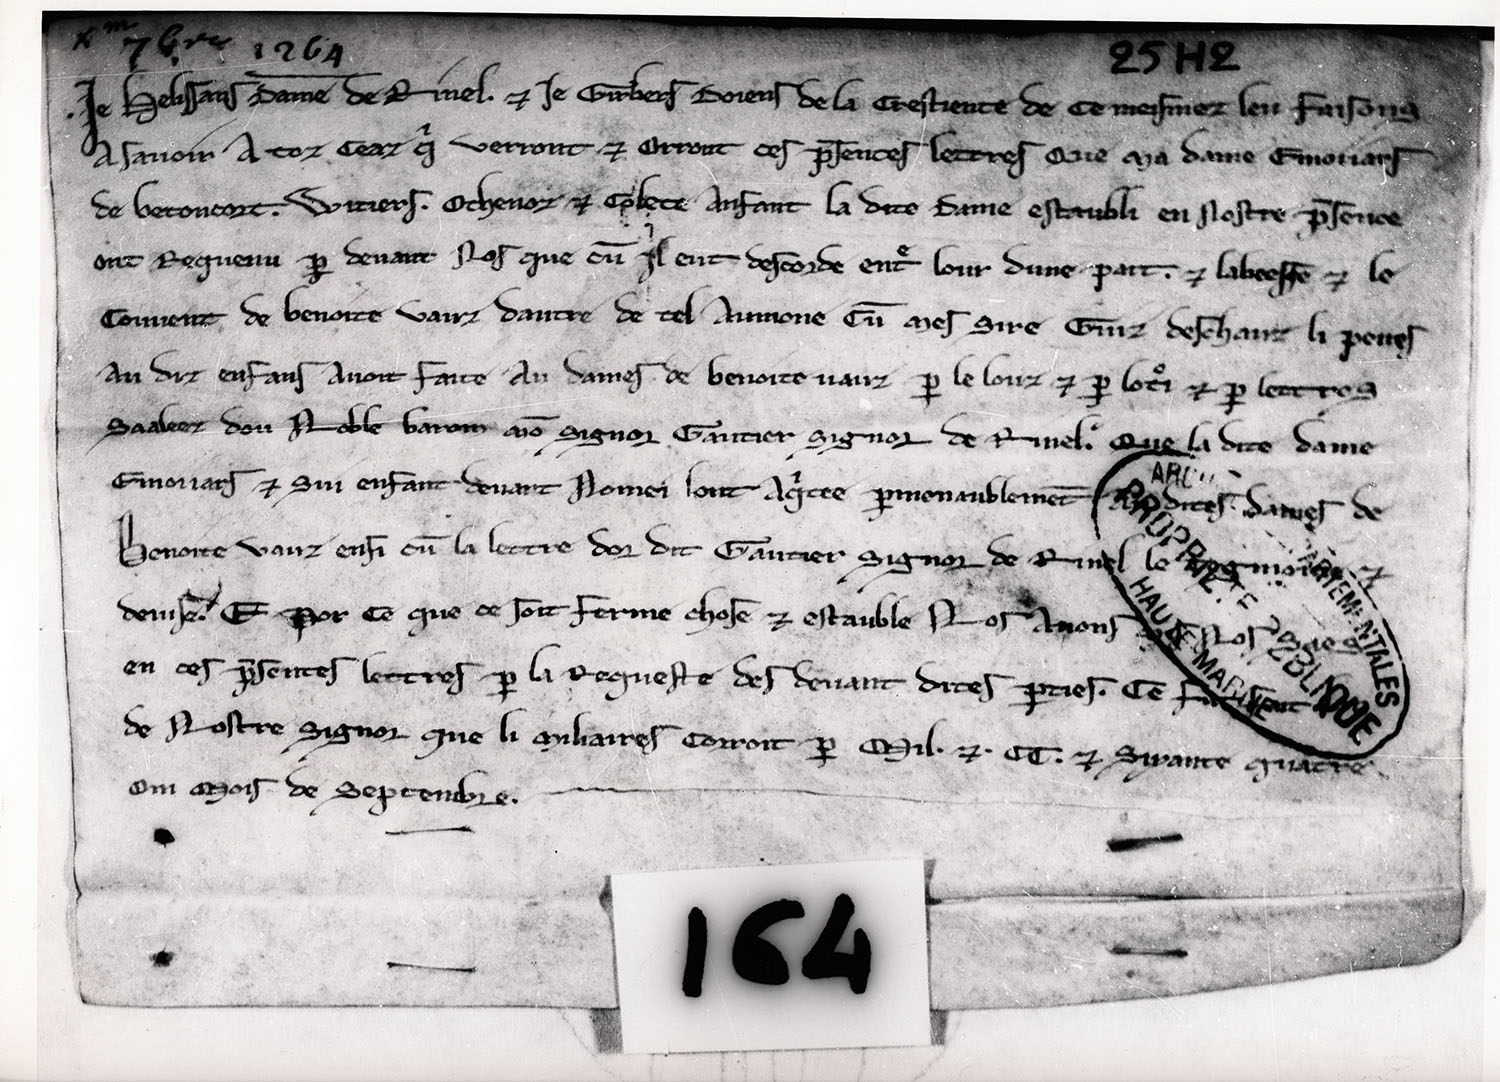 Xm 7bre 1264
25 H2
Je helissans dame de Rinel. ⁊ Je Girbers doiens de la Crestiente de ce meismez leu faisons
A savoir A toz ceaz q̍ verront ⁊ Orront ces p̄sentes lettres Que ma dame Emoniars
de betoncort. Witiers. Ochenoz ⁊ Colete Anfant la dite dame estaubli en Nostre p̄sence
ont Requenu ꝑ devant Nos que cū il ent descorde ent̍ lour dune part. ⁊ labeesse ⁊ le
Couvent de benoite vauz dautre de tel Aumone Cū mes sire Guiz deschanz li peires
Au diz enfans Avoit faite Au dames de benoite vauz ꝑ le louz ⁊ ꝑ lot̊i ⁊ ꝑ lettres
Saalees dou Noble baron mō signor Gautier signor de Rinel. Que la dite dame
Emoniars ⁊ Sui enfant devant Nomei lont Aq̍tee ꝑmenaublemēt Au dites dames de
Benoite vauz ensi cū la lettre dor dit Gautier signor de Rinel le ⁊
devise. Et Por ce que ce soit ferme chose ⁊ estauble Nos Avons Nos
en ces p̄sentes lettres ꝑ la Requeste des devant dites ꝑties. Ce fu fait
de Nostre signor que li miliaires Corroit ꝑ Mil. ⁊. CC. ⁊ Sixante quatre
Ou Mois de Septembre.
ARCH DÉPARTEMENTALES
PROPRIÉTÉ PUBLIQUE
HAUTE MARNE
164